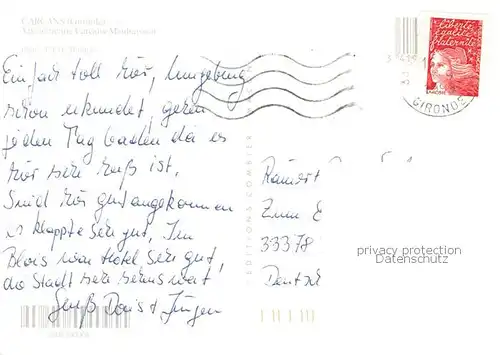 CARCANS (Gironde)
Einfach toll hier, Umgebung
schon erkundet, gehen
jeden Tag baden da es
hier sehr heiß ist.
Sind hier gut angekommen
es klappte sehr gut, Im
Blois war Hotel sehr gut,
die Stadt sehr sehenswert
Gruß Doris + Jürgen
EDITIONS COMBIER
LIBERTÉ
ÉGALITÉ
FRATERNITÉ
GIRONDE
Rainer
Zum
33378
Deutsch
privacy protection
Datenschutz